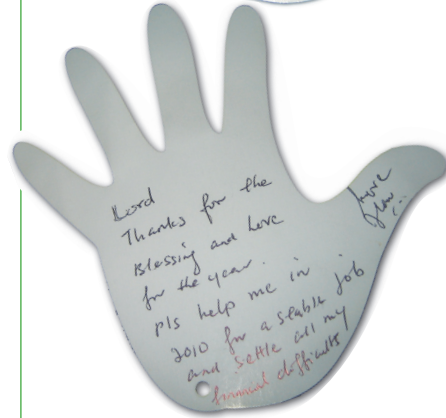 Lord
Thanks for the
Blessing and Love
for the year.
pls help me in
2010 for a stable job
and settle all my
financial difficulty
Love